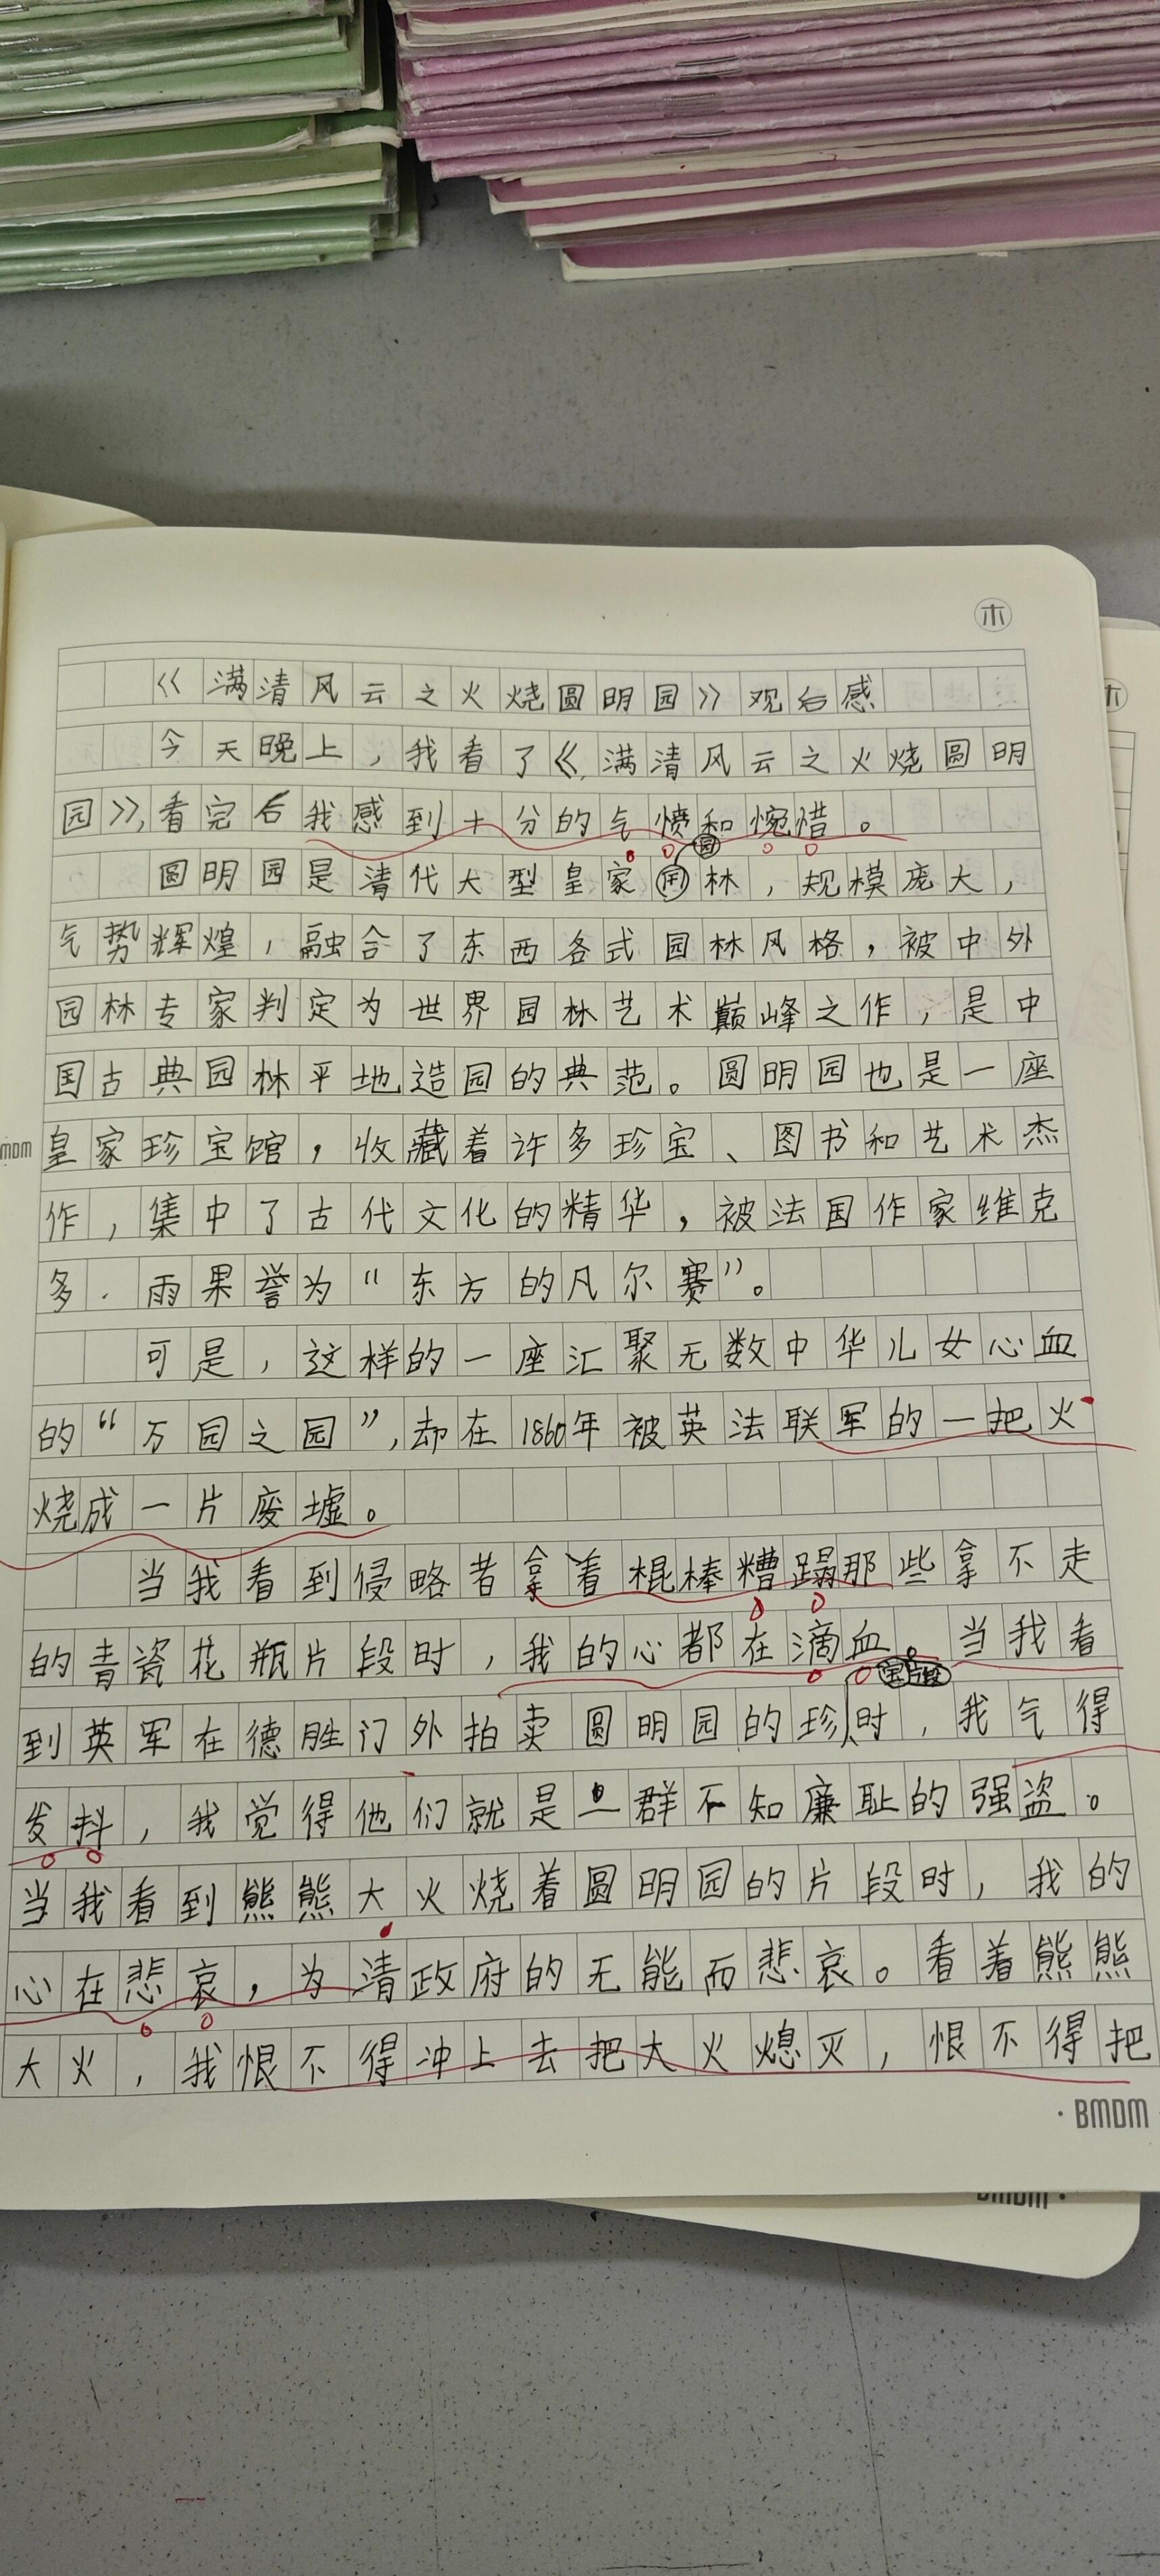 木
《满清风云之火烧圆明园》观后感
今天晚上，我看了《满清风云之火烧圆明
园》，看完后我感到十分的气愤和惋惜。
圆明园是清代大型皇家园林，规模庞大，
气势辉煌，融合了东西各式园林风格，被中外
园林专家判定为世界园林艺术巅峰之作，是中
国古典园林平地造园的典范。圆明园也是一座
皇家珍宝馆，收藏着许多珍宝、图书和艺术杰
作，集中了古代文化的精华，被法国作家维克
多·雨果誉为“东方的凡尔赛”。
可是，这样的一座汇聚无数中华儿女心血
的“万园之园”，却在1860年被英法联军的一把火
烧成一片废墟。
当我看到侵略者拿着棍棒糟蹋那些拿不走
的青瓷花瓶片段时，我的心都在滴血。当我看
到英军在德胜门外拍卖圆明园的珍宝片段时，我气得
发抖，我觉得他们就是一群不知廉耻的强盗。
当我看到熊熊大火烧着圆明园的片段时，我的
心在悲哀，为清政府的无能而悲哀。看着熊熊
大火，我恨不得冲上去把大火熄灭，恨不得把
BMDM